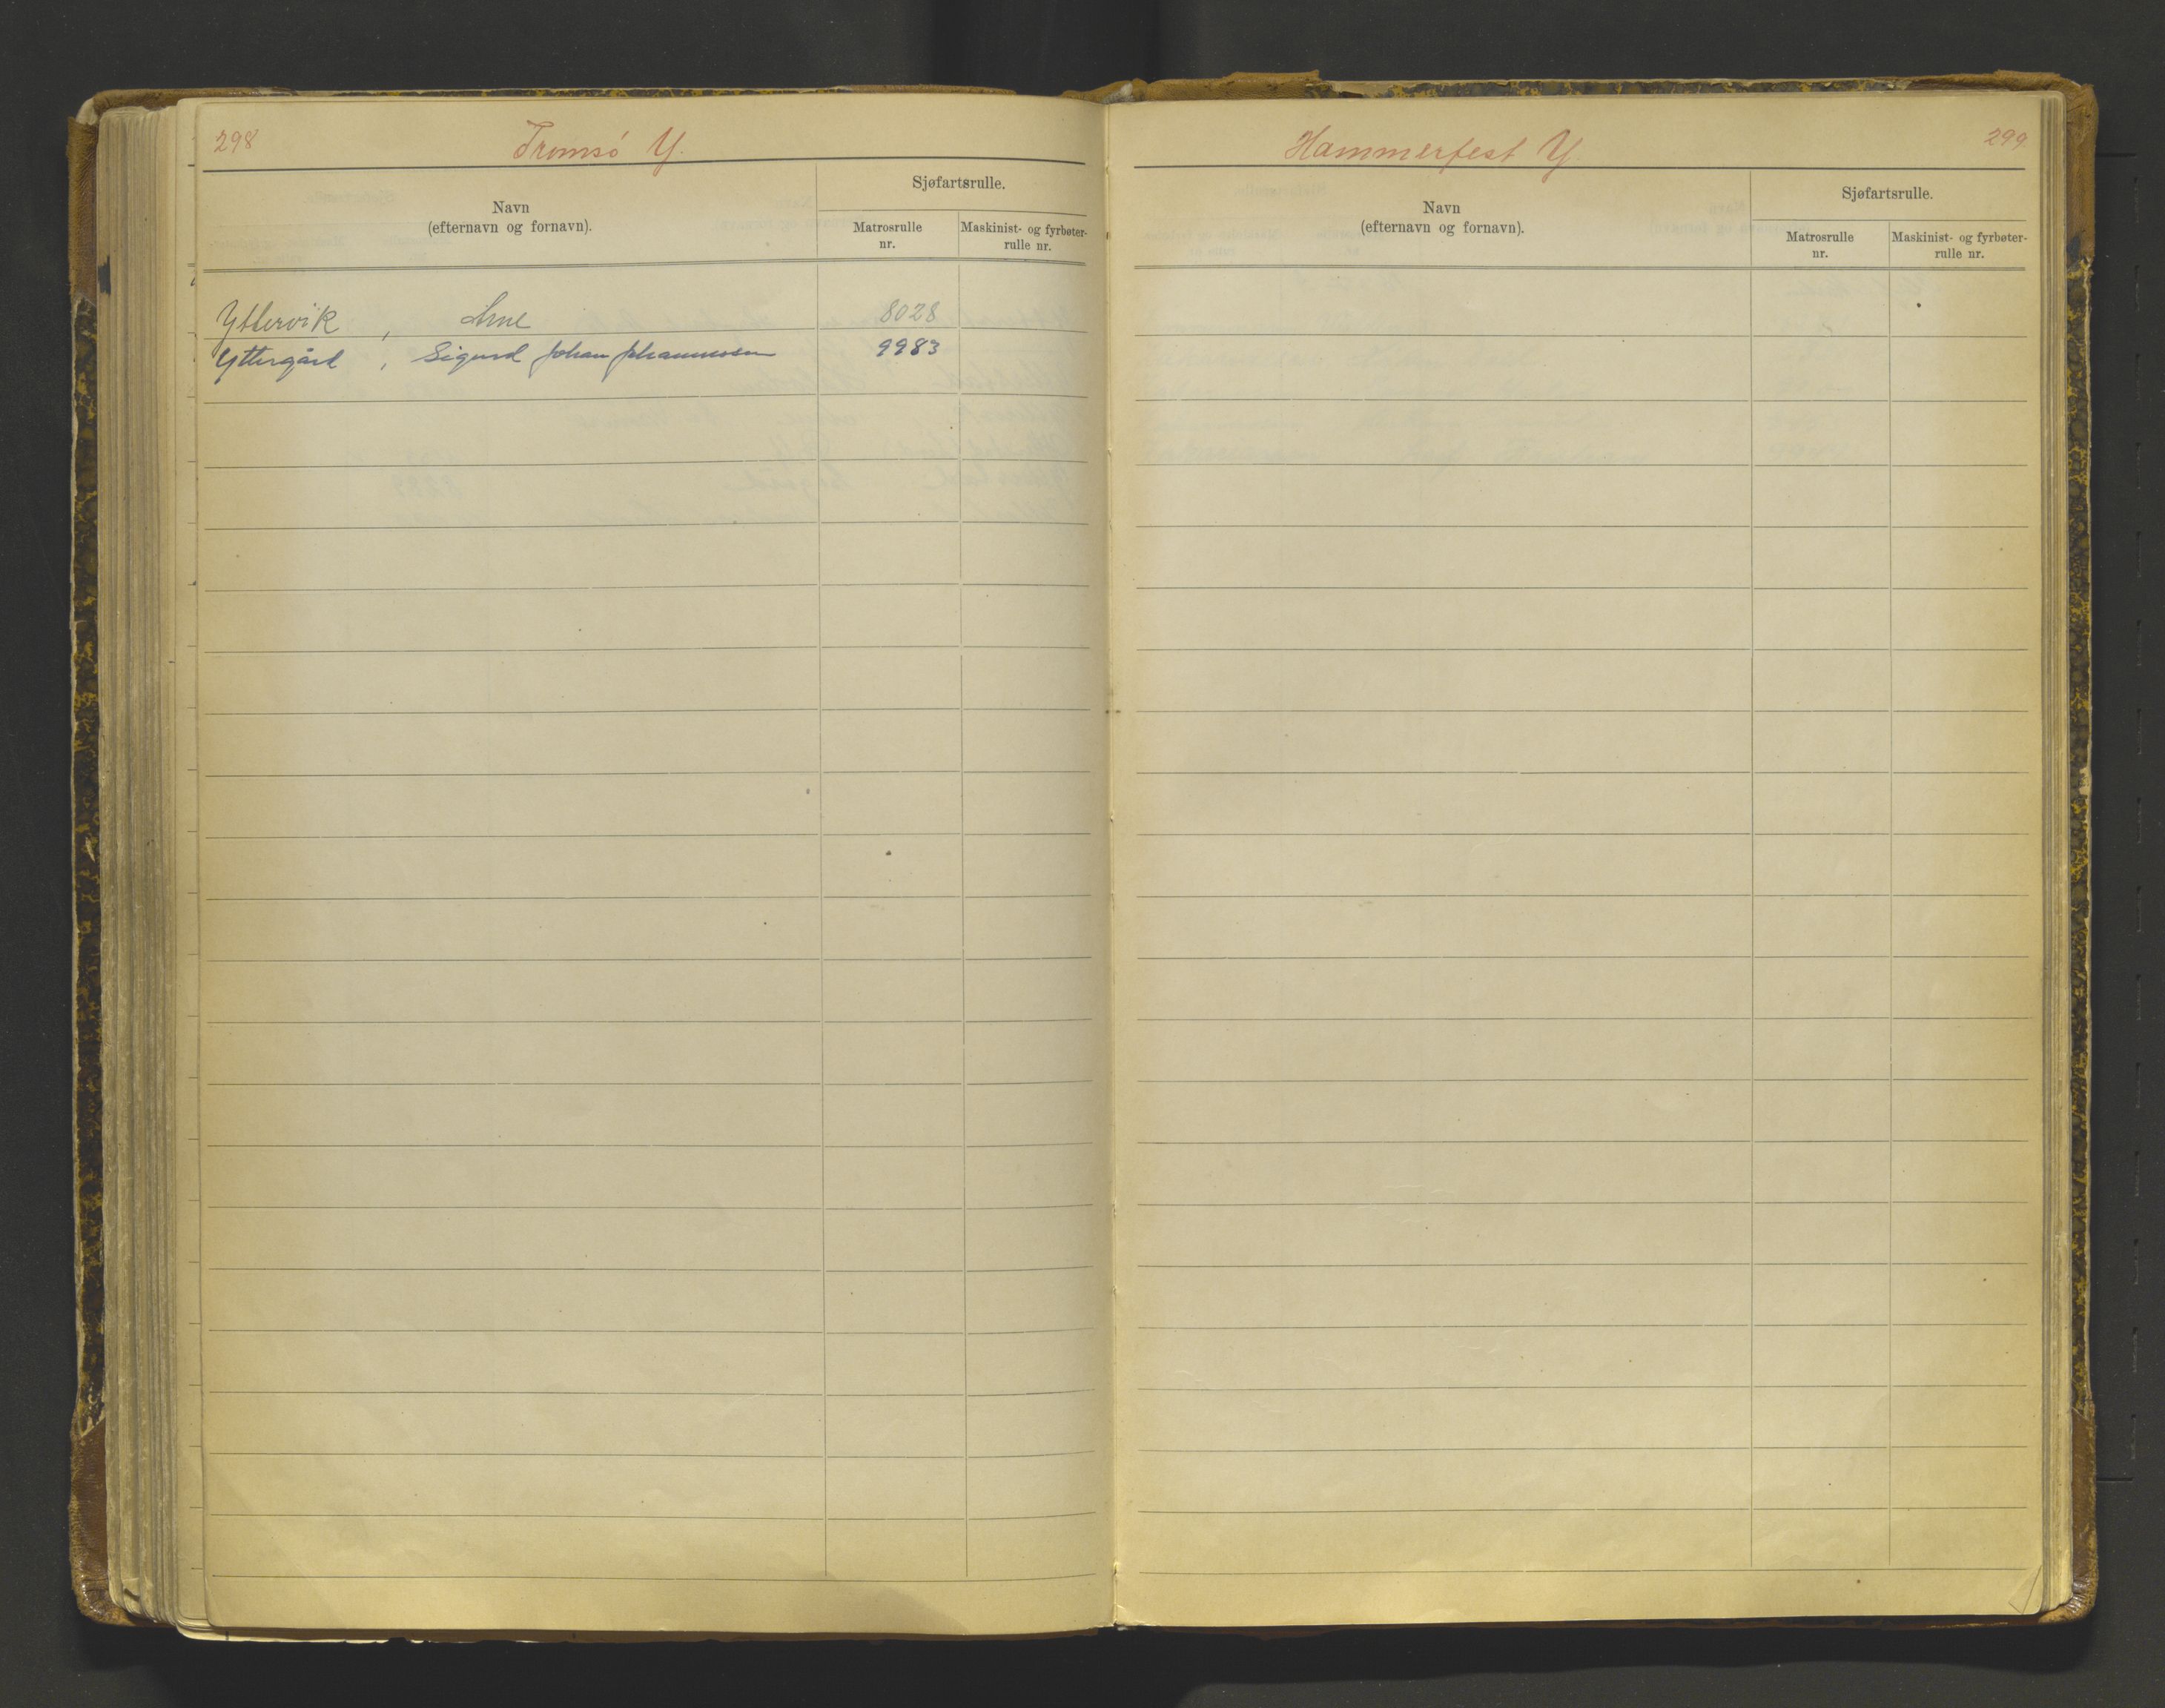 298
Tromsó Y.
Navn
(efternavn og fornavn).
Sjøfartsrulle.
Matrosrulle
nr.
Maskinist- og fyrbøter-
rulle nr.
Yttervik , Arne 8028
Yttergård , Sigurd Johan Johannessen 9983
Hammerfest Y.
299
Navn
(efternavn og fornavn).
Sjøfartsrulle.
Matrosrulle
nr.
Maskinist- og fyrbøter-
rulle nr.